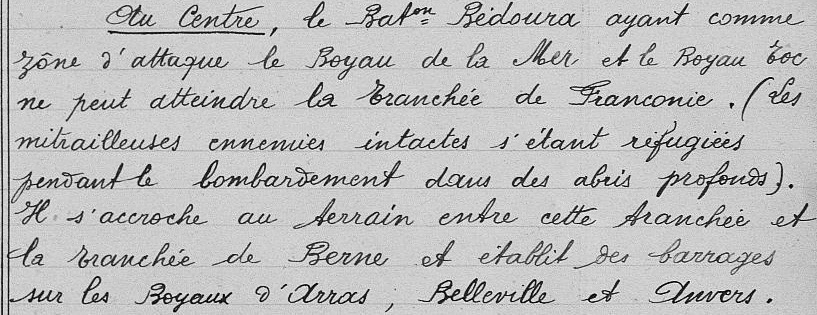 Au Centre, le Bat.on Bédoura ayant comme
zône d'attaque le Boyau de la Mer et le Boyau Toc
ne peut atteindre la tranchée de Franconie. (Les
mitrailleuses ennemies intactes s'étant réfugiées
pendant le bombardement dans des abris profonds).
Il s'accroche au terrain entre cette tranchée et
la tranchée de Berne et établit des barrages
sur les Boyaux d'Arras, Belleville et Anvers.